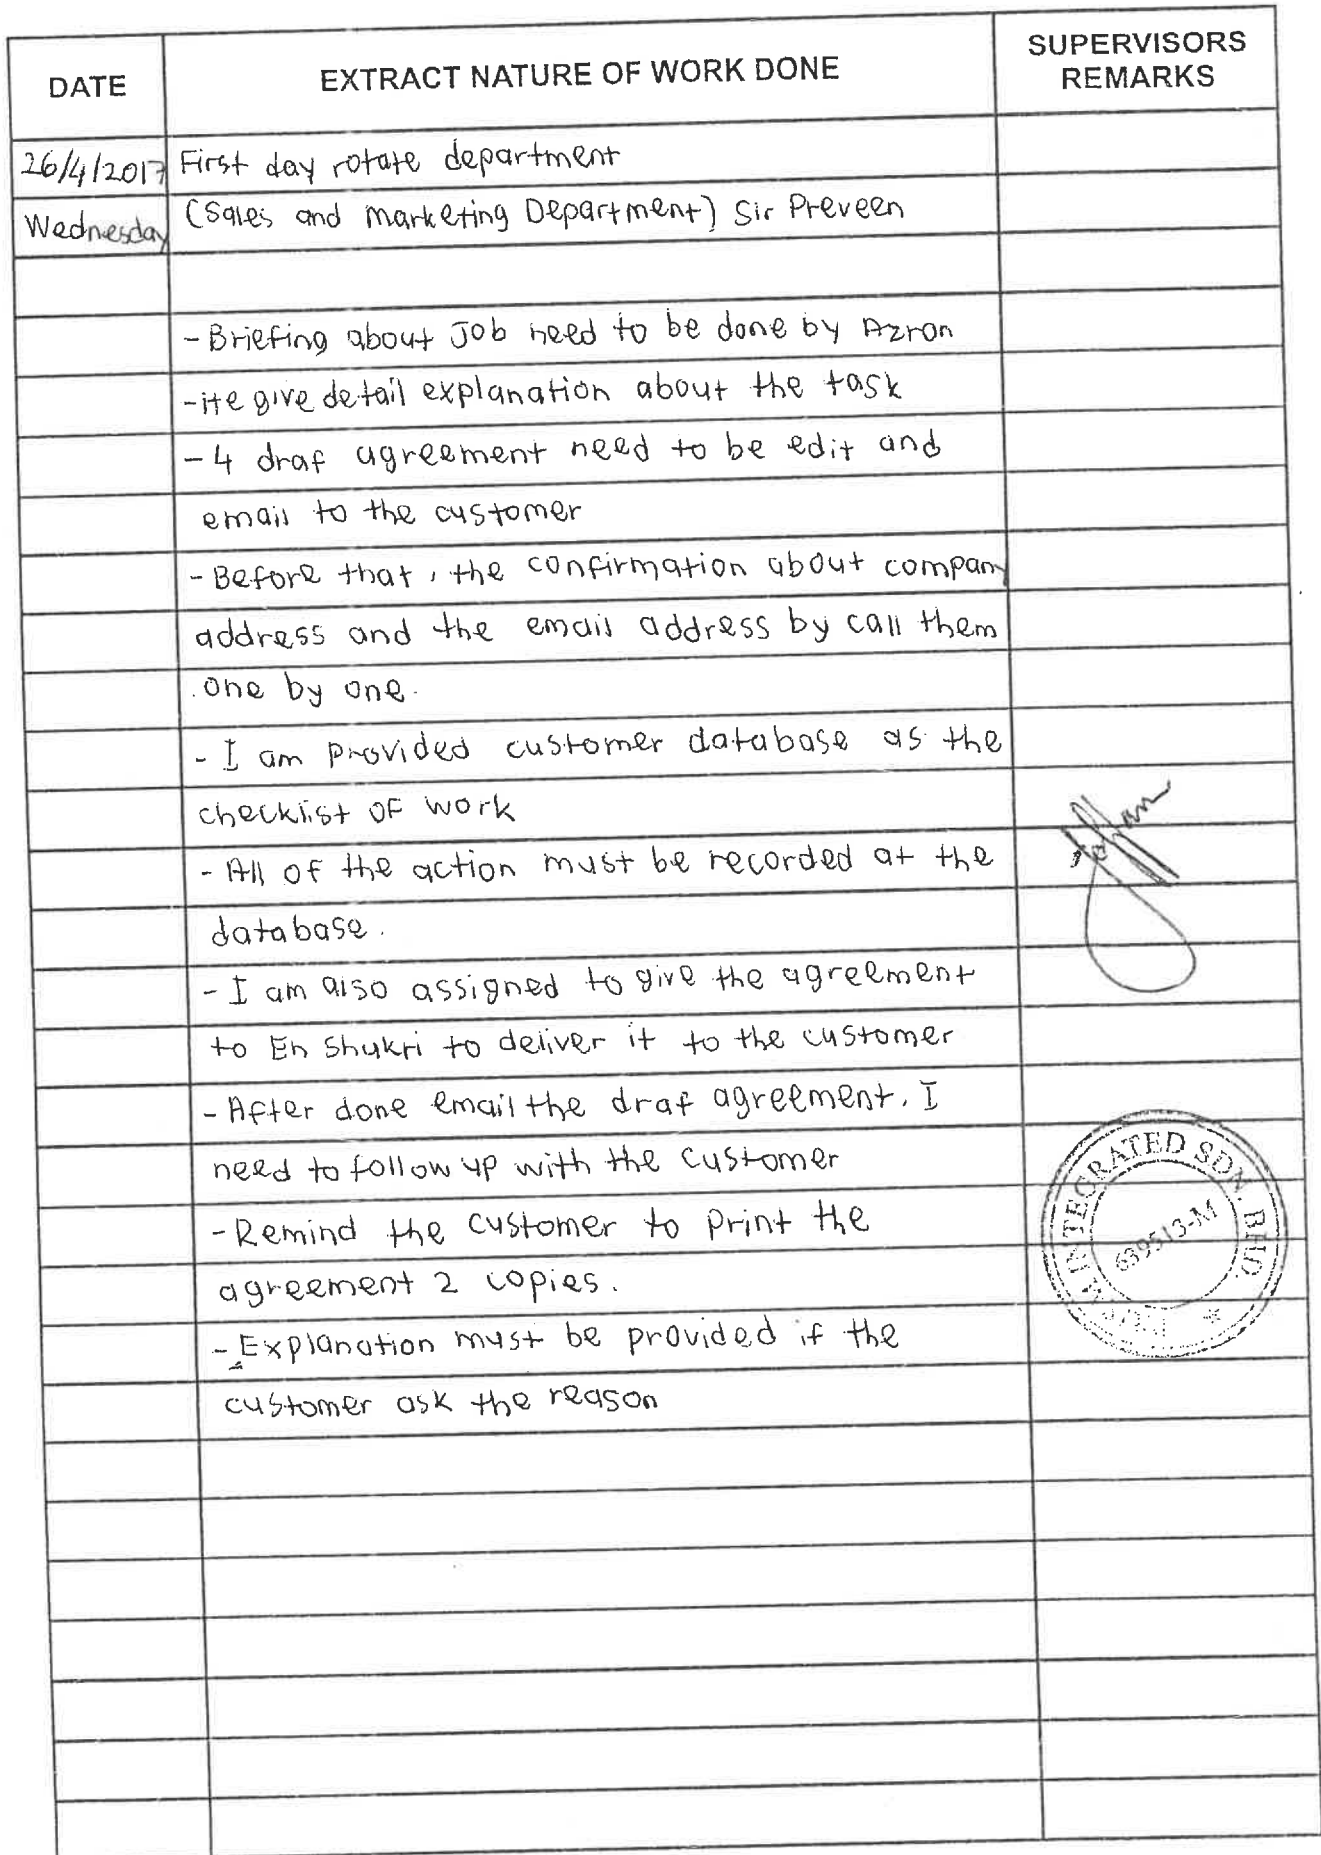 DATE
EXTRACT NATURE OF WORK DONE
SUPERVISORS
REMARKS
26/4/2017 First day rotate department
Wednesday (Sales and Marketing Department) Sir Preveen
- Briefing about Job need to be done by Azron
- He give detail explanation about the task
- 4 draf agreement need to be edit and
email to the customer
- Before that, the confirmation about company
address and the email address by call them
one by one.
- I am provided customer database as the
checklist of work
- All of the action must be recorded at the
database.
- I am also assigned to give the agreement
to En Shukri to deliver it to the customer
- After done email the draf agreement, I
need to follow up with the customer
- Remind the customer to print the
agreement 2 copies.
- Explanation must be provided if the
customer ask the reason
INTEGRATED SDN. BHD.
639513-M